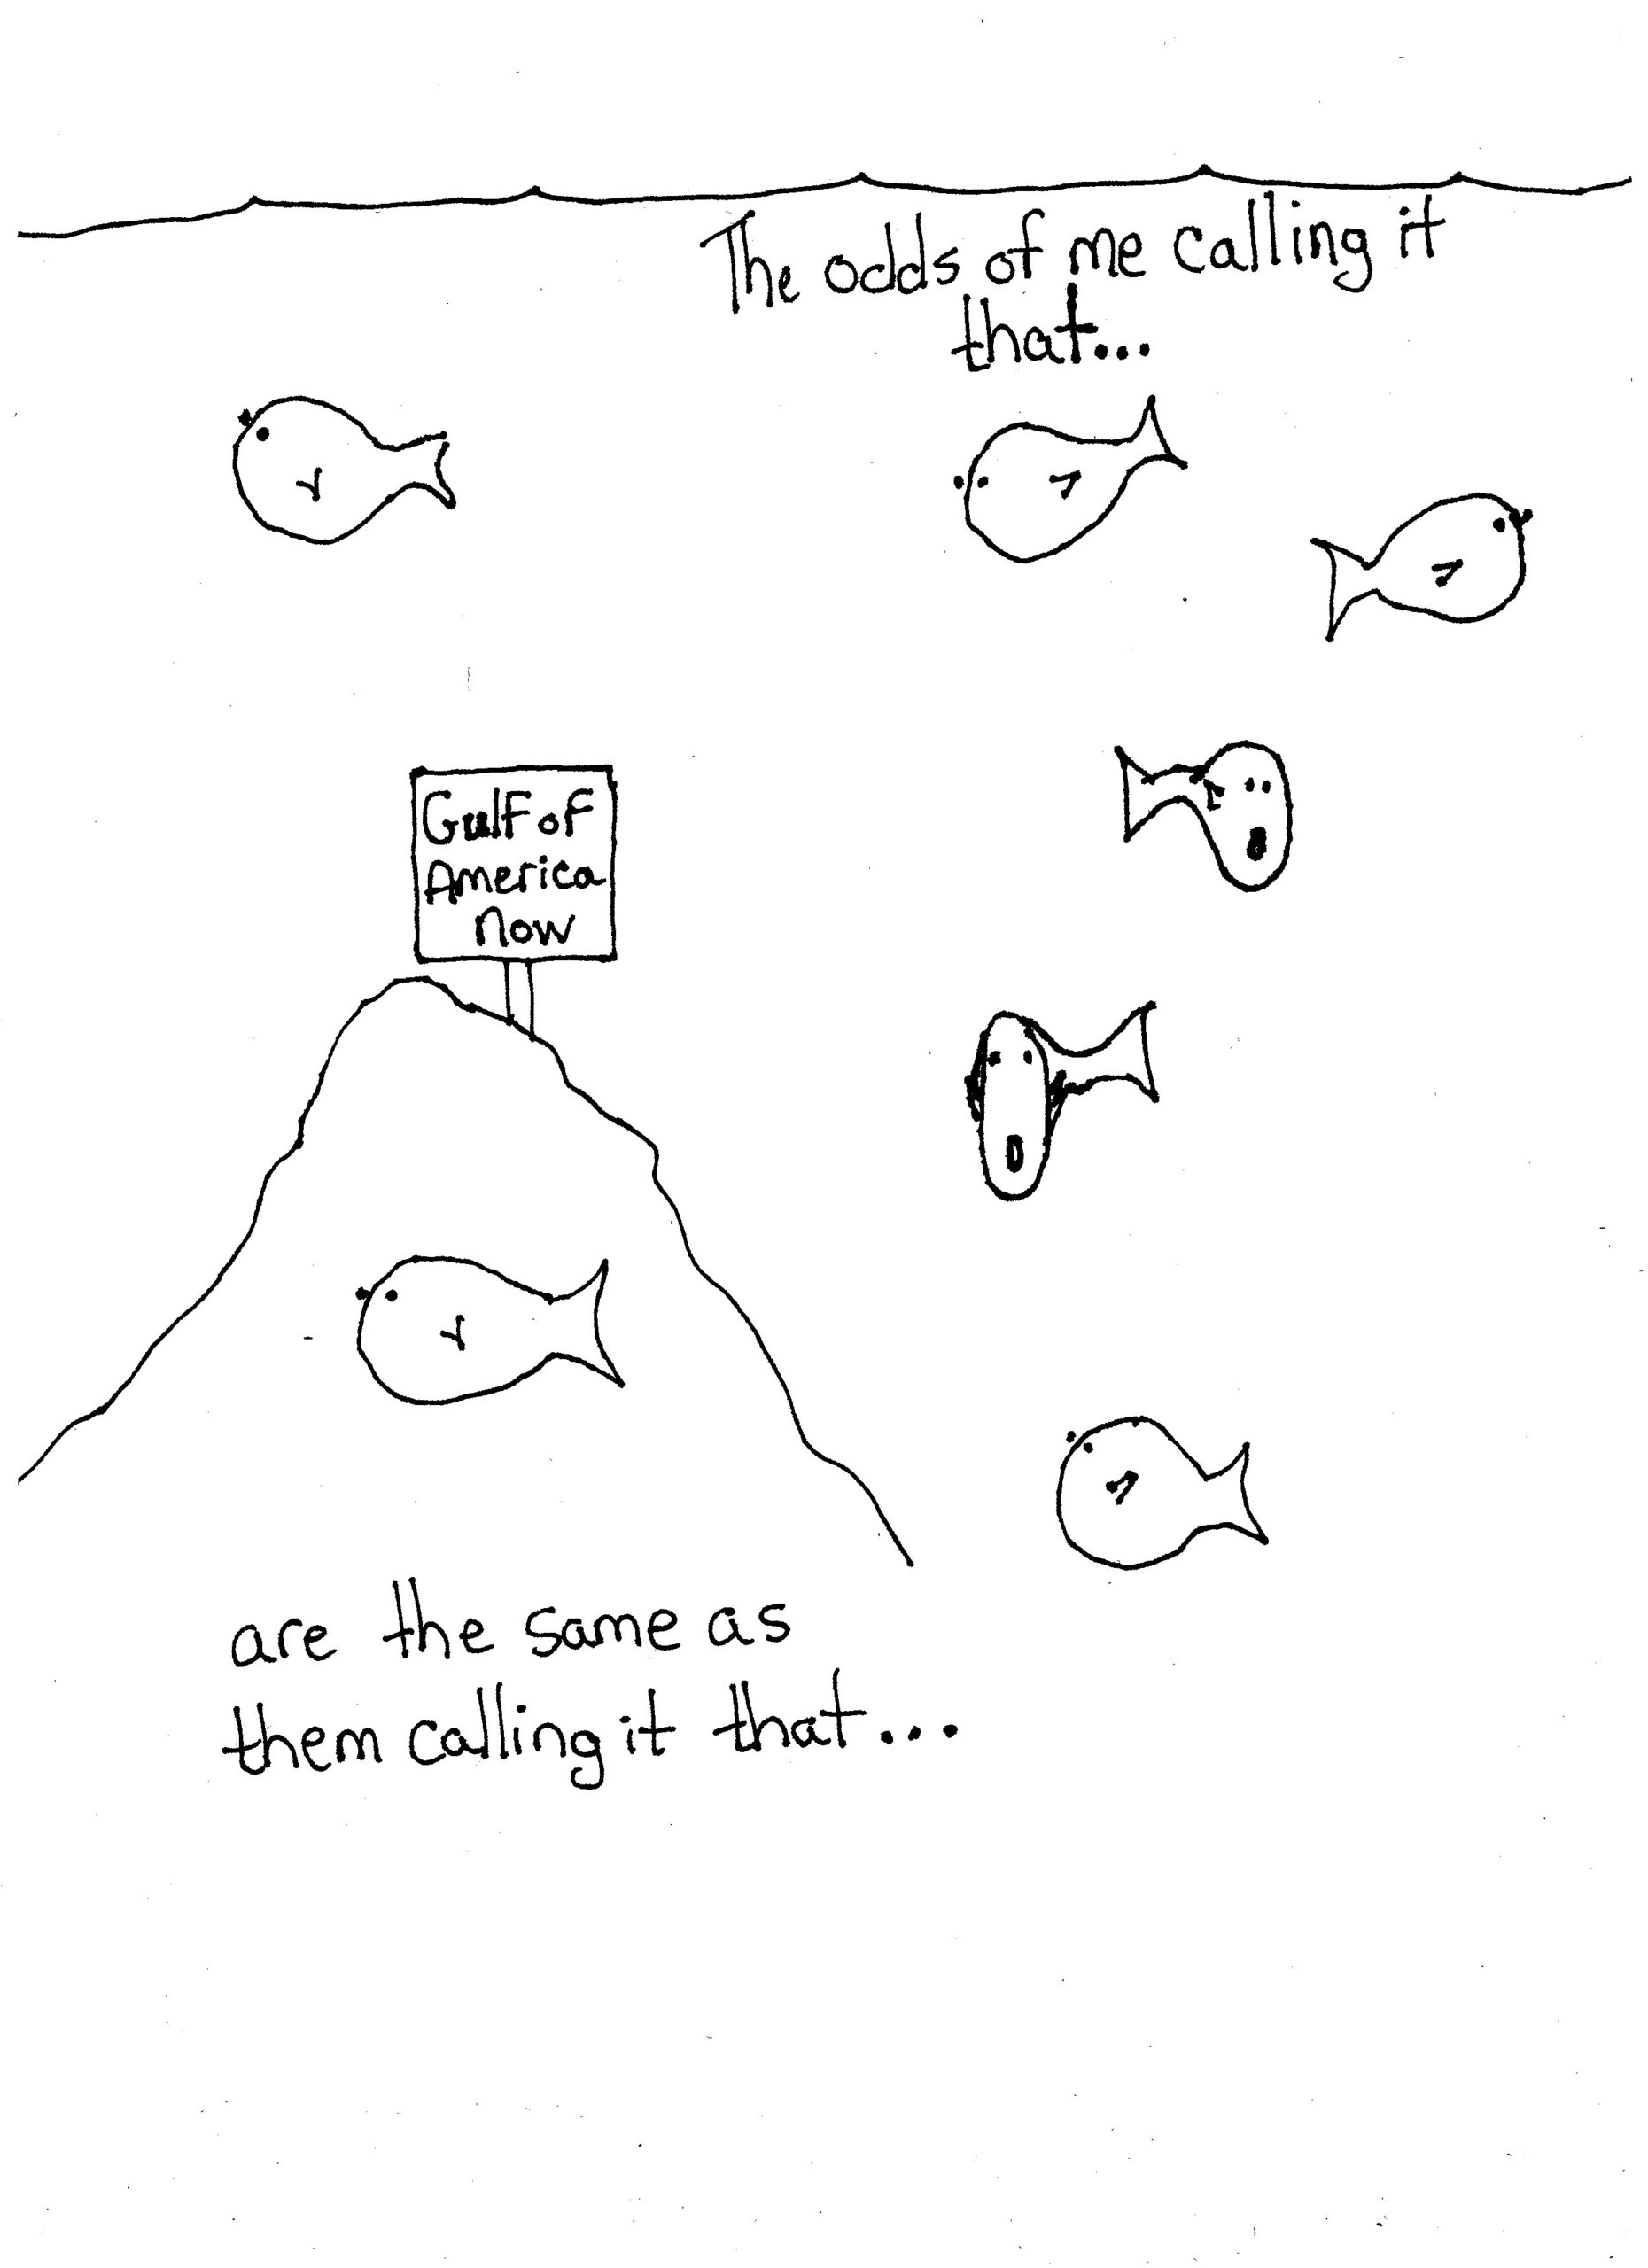 The odds of me calling it
that...
Gulf of
America
Now
are the same as
them calling it that...